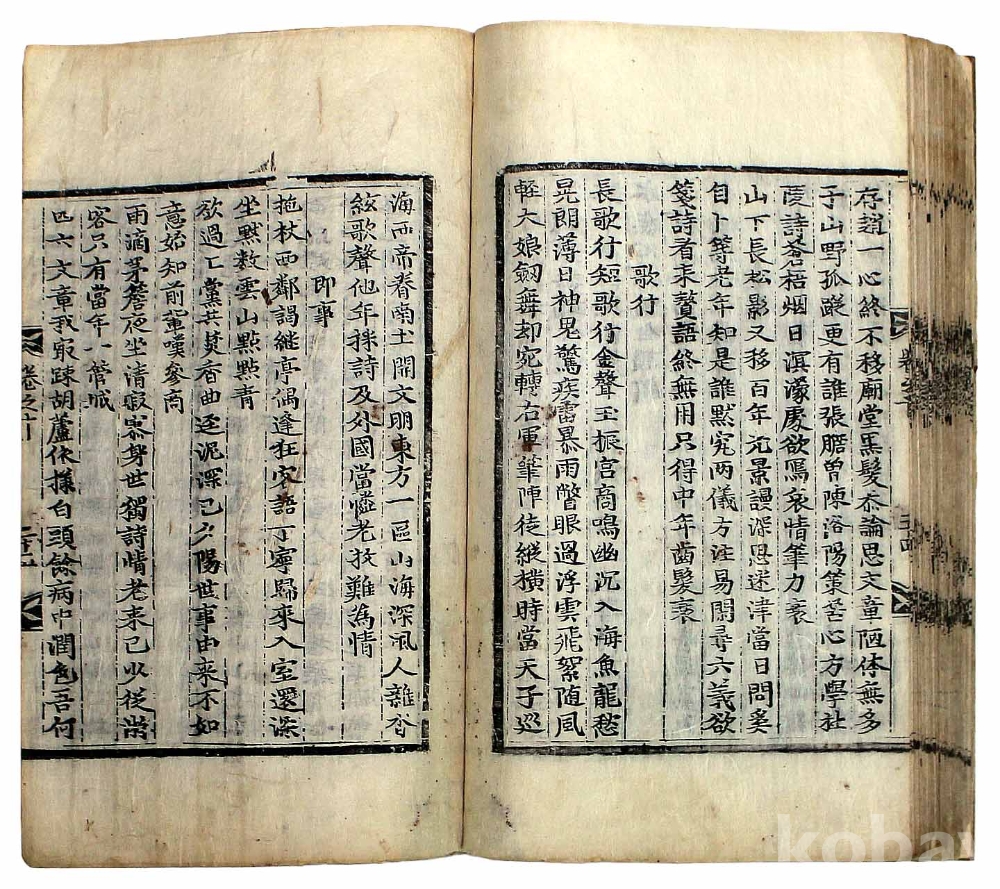 存趙一心終不移廟堂黑髮忝論思文章陋体無多
子山野孤蹤更有誰張膽曽陳洛陽策苦心方學杜
陵詩蒼梧烟日溟濛處欲寫哀情筆力衰
山下長松影又移百年光景謾深思迷津當日問奚
自卜等老年知是誰默究兩儀方注易閒尋六義欲
箋詩看來贅語終無用只得中年齒髮衰
歌行
長歌行短歌行金聲玉振宮商鳴幽沉入海魚龍愁
晃朗薄日神鬼驚疾雷暴雨瞥眼過浮雲飛絮随風
軽大娘劒舞却宛轉右軍筆陣徒縱橫時當天子巡
海西帝眷南土開文明東方一區山海深風人雜沓
絃歌聲他年採詩及外國當嗟老牧難為情
即事
拖杖西鄰謁継亭偶逢狂客語丁寧歸來入室還深
坐默数雲山點點青
欲過仁黨共焚香曲逕泥深已夕陽世事由来不如
意始知前軰嘆參商
雨滴茅簷夜坐清寂寥身世獨詩情老来已以從常
容只有當年一管城
四六文章我寂踈胡蘆依㨾白頭餘病中潤色吾何
卷之
卷之廿